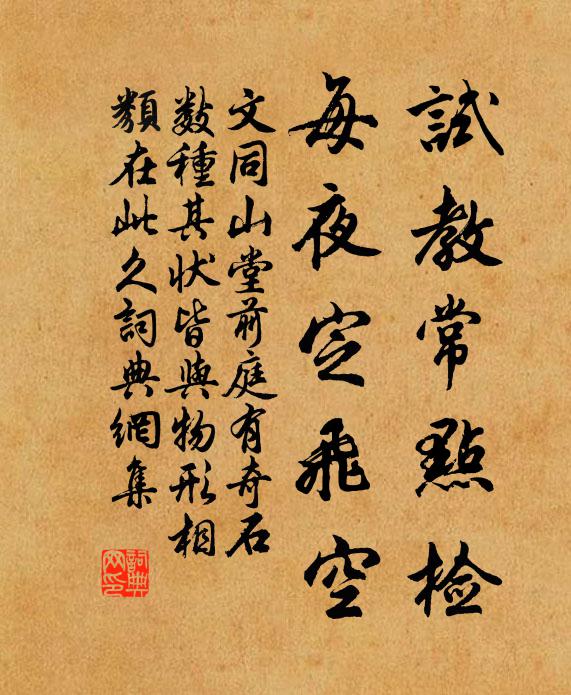 試教常點檢
每夜定飛空
文同山堂前庭有奇石
数種其状皆與物形相
類在此久詞典網集
詞典网印